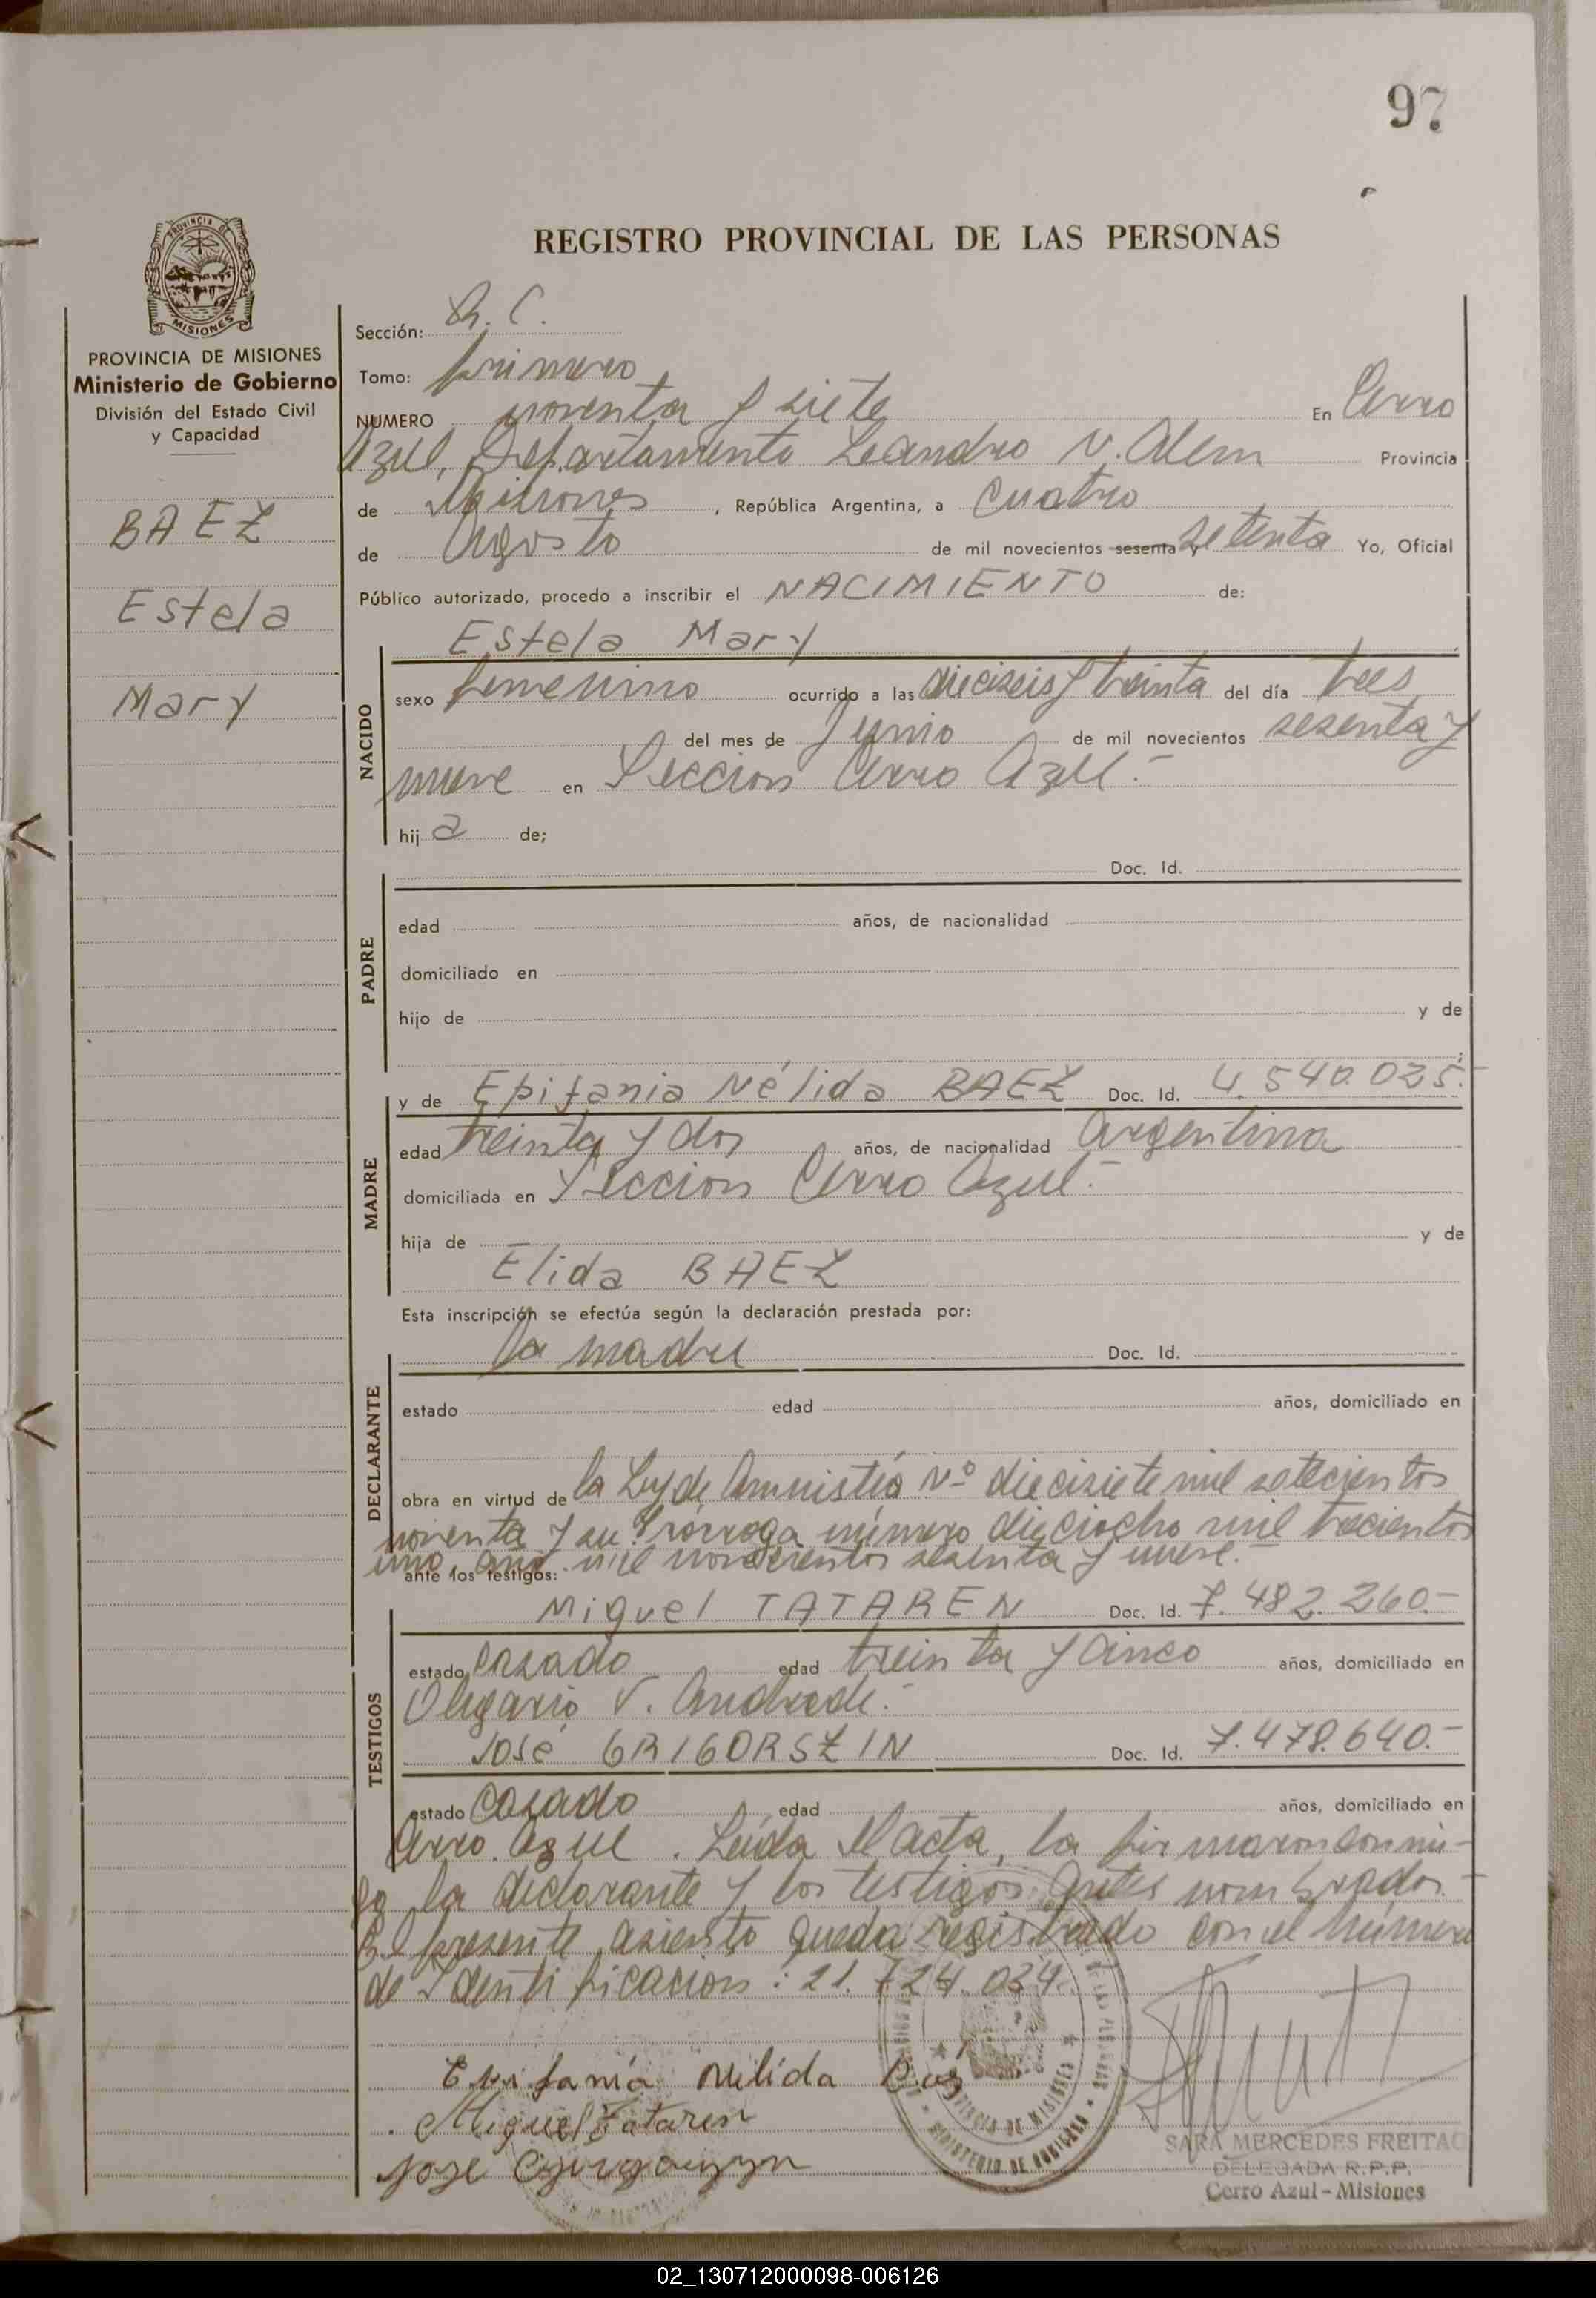 97
REGISTRO PROVINCIAL DE LAS PERSONAS
PROVINCIA DE MISIONES
Ministerio de Gobierno
División del Estado Civil
y Capacidad
BAEZ
Estela
Mary
Sección: R. C.
Tomo: primero
NUMERO noventa y siete En Cerro
Azul, Departamento Leandro N. Alem Provincia
de Misiones, República Argentina, a cuatro
de Agosto de mil novecientos sesenta y setenta Yo, Oficial
Público autorizado, procedo a inscribir el NACIMIENTO de:
Estela Mary
NACIDO
sexo femenino ocurrido a las dieciseis y treinta del día tres
del mes de Junio de mil novecientos sesenta y
nueve en Sección Cerro Azul.-
hija de;
Doc. Id.
PADRE
edad años, de nacionalidad
domiciliado en
hijo de y de
y de Epifania Nélida BAEZ Doc. Id. 4.540.025.-
MADRE
edad treinta y dos años, de nacionalidad Argentina
domiciliada en Sección Cerro Azul.-
hija de y de
Elida BAEZ
Esta inscripción se efectúa según la declaración prestada por:
la madre Doc. Id.
DECLARANTE
estado edad años, domiciliado en
obra en virtud de la Ley de Amnistía Nº diecisiete mil setecientos
noventa y su Prórroga número dieciocho mil trecientos
uno, año mil novecientos sesenta y nueve.-
ante los testigos:
Miguel TATAREN Doc. Id. 7.482.260.-
TESTIGOS
estado casado edad treinta y cinco años, domiciliado en
Olegario V. Andrade.-
José GRIGORSZIN Doc. Id. 7.478.640.-
estado casado edad años, domiciliado en
Cerro Azul. Leída el acta, la firmaron conmi-
go la declarante y los testigos antes nombrados.-
El presente asiento queda registrado con el número
de Identificación: 21.724.034.
Epifania Nelida Baez
Miguel Tataren
Jose
SARA MERCEDES FREITAG
DELEGADA R.P.P.
Cerro Azul - Misiones
02_130712000098-006126